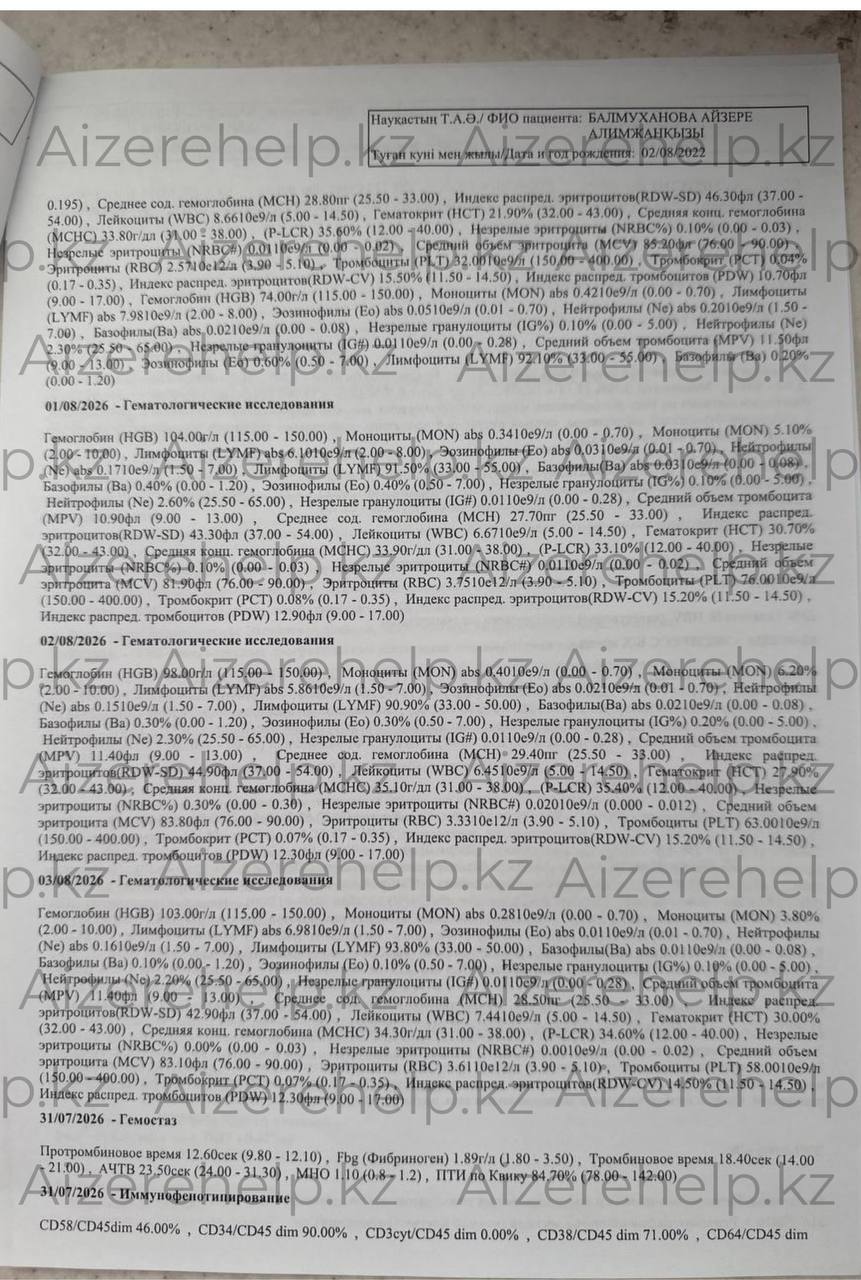 Науқастың Т.А.Ә./ ФИО пациента: БАЛМУХАНОВА АЙЗЕРЕ
АЛИМЖАНҚЫЗЫ
Туған күні мен жылы/Дата и год рождения: 02/08/2022
0.195) , Среднее сод. гемоглобина (MCH) 28.80пг (25.50 - 33.00) , Индекс распред. эритроцитов(RDW-SD) 46.30фл (37.00 -
54.00) , Лейкоциты (WBC) 8.6610е9/л (5.00 - 14.50) , Гематокрит (HCT) 21.90% (32.00 - 43.00) , Средняя конц. гемоглобина
(MCHC) 33.80г/дл (31.00 - 38.00) , (P-LCR) 35.60% (12.00 - 40.00) , Незрелые эритроциты (NRBC%) 0.10% (0.00 - 0.03) ,
Незрелые эритроциты (NRBC#) 0.0110е9/л (0.00 - 0.02) , Средний объем эритроцита (MCV) 85.20фл (76.00 - 90.00) ,
Эритроциты (RBC) 2.5710е12/л (3.90 - 5.10) , Тромбоциты (PLT) 32.0010е9/л (150.00 - 400.00) , Тромбокрит (PCT) 0.04%
(0.17 - 0.35) , Индекс распред. эритроцитов(RDW-CV) 15.50% (11.50 - 14.50) , Индекс распред. тромбоцитов (PDW) 10.70фл
(9.00 - 17.00) , Гемоглобин (HGB) 74.00г/л (115.00 - 150.00) , Моноциты (MON) abs 0.4210е9/л (0.00 - 0.70) , Лимфоциты
(LYMF) abs 7.9810е9/л (2.00 - 8.00) , Эозинофилы (Ео) abs 0.0510е9/л (0.01 - 0.70) , Нейтрофилы (Ne) abs 0.2010е9/л (1.50 -
7.00) , Базофилы(Ba) abs 0.0210е9/л (0.00 - 0.08) , Незрелые гранулоциты (IG%) 0.10% (0.00 - 5.00) , Нейтрофилы (Ne)
2.30% (25.50 - 65.00) , Незрелые гранулоциты (IG#) 0.0110е9/л (0.00 - 0.28) , Средний объем тромбоцита (MPV) 11.50фл
(9.00 - 13.00) , Эозинофилы (Ео) 0.60% (0.50 - 7.00) , Лимфоциты (LYMF) 92.10% (33.00 - 55.00) , Базофилы (Ba) 0.20%
(0.00 - 1.20)
01/08/2026 - Гематологические исследования
Гемоглобин (HGB) 104.00г/л (115.00 - 150.00) , Моноциты (MON) abs 0.3410е9/л (0.00 - 0.70) , Моноциты (MON) 5.10%
(2.00 - 10.00) , Лимфоциты (LYMF) abs 6.1010е9/л (2.00 - 8.00) , Эозинофилы (Ео) abs 0.0310е9/л (0.01 - 0.70) , Нейтрофилы
(Ne) abs 0.1710е9/л (1.50 - 7.00) , Лимфоциты (LYMF) 91.50% (33.00 - 55.00) , Базофилы(Ba) abs 0.0310е9/л (0.00 - 0.08) ,
Базофилы (Ba) 0.40% (0.00 - 1.20) , Эозинофилы (Ео) 0.40% (0.50 - 7.00) , Незрелые гранулоциты (IG%) 0.10% (0.00 - 5.00) ,
Нейтрофилы (Ne) 2.60% (25.50 - 65.00) , Незрелые гранулоциты (IG#) 0.0110е9/л (0.00 - 0.28) , Средний объем тромбоцита
(MPV) 10.90фл (9.00 - 13.00) , Среднее сод. гемоглобина (MCH) 27.70пг (25.50 - 33.00) , Индекс распред.
эритроцитов(RDW-SD) 43.30фл (37.00 - 54.00) , Лейкоциты (WBC) 6.6710е9/л (5.00 - 14.50) , Гематокрит (HCT) 30.70%
(32.00 - 43.00) , Средняя конц. гемоглобина (MCHC) 33.90г/дл (31.00 - 38.00) , (P-LCR) 33.10% (12.00 - 40.00) , Незрелые
эритроциты (NRBC%) 0.10% (0.00 - 0.03) , Незрелые эритроциты (NRBC#) 0.0110е9/л (0.00 - 0.02) , Средний объем
эритроцита (MCV) 81.90фл (76.00 - 90.00) , Эритроциты (RBC) 3.7510е12/л (3.90 - 5.10) , Тромбоциты (PLT) 76.0010е9/л
(150.00 - 400.00) , Тромбокрит (PCT) 0.08% (0.17 - 0.35) , Индекс распред. эритроцитов(RDW-CV) 15.20% (11.50 - 14.50) ,
Индекс распред. тромбоцитов (PDW) 12.90фл (9.00 - 17.00)
02/08/2026 - Гематологические исследования
Гемоглобин (HGB) 98.00г/л (115.00 - 150.00) , Моноциты (MON) abs 0.4010е9/л (0.00 - 0.70) , Моноциты (MON) 6.20%
(2.00 - 10.00) , Лимфоциты (LYMF) abs 5.8610е9/л (1.50 - 7.00) , Эозинофилы (Ео) abs 0.0210е9/л (0.01 - 0.70) , Нейтрофилы
(Ne) abs 0.1510е9/л (1.50 - 7.00) , Лимфоциты (LYMF) 90.90% (33.00 - 50.00) , Базофилы(Ba) abs 0.0210е9/л (0.00 - 0.08) ,
Базофилы (Ba) 0.30% (0.00 - 1.20) , Эозинофилы (Ео) 0.30% (0.50 - 7.00) , Незрелые гранулоциты (IG%) 0.20% (0.00 - 5.00) ,
Нейтрофилы (Ne) 2.30% (25.50 - 65.00) , Незрелые гранулоциты (IG#) 0.0110е9/л (0.00 - 0.28) , Средний объем тромбоцита
(MPV) 11.40фл (9.00 - 13.00) , Среднее сод. гемоглобина (MCH) 29.40пг (25.50 - 33.00) , Индекс распред.
эритроцитов(RDW-SD) 44.90фл (37.00 - 54.00) , Лейкоциты (WBC) 6.4510е9/л (5.00 - 14.50) , Гематокрит (HCT) 27.90%
(32.00 - 43.00) , Средняя конц. гемоглобина (MCHC) 35.10г/дл (31.00 - 38.00) , (P-LCR) 35.40% (12.00 - 40.00) , Незрелые
эритроциты (NRBC%) 0.30% (0.00 - 0.30) , Незрелые эритроциты (NRBC#) 0.02010е9/л (0.000 - 0.012) , Средний объем
эритроцита (MCV) 83.80фл (76.00 - 90.00) , Эритроциты (RBC) 3.3310е12/л (3.90 - 5.10) , Тромбоциты (PLT) 63.0010е9/л
(150.00 - 400.00) , Тромбокрит (PCT) 0.07% (0.17 - 0.35) , Индекс распред. эритроцитов(RDW-CV) 15.20% (11.50 - 14.50) ,
Индекс распред. тромбоцитов (PDW) 12.30фл (9.00 - 17.00)
03/08/2026 - Гематологические исследования
Гемоглобин (HGB) 103.00г/л (115.00 - 150.00) , Моноциты (MON) abs 0.2810е9/л (0.00 - 0.70) , Моноциты (MON) 3.80%
(2.00 - 10.00) , Лимфоциты (LYMF) abs 6.9810е9/л (1.50 - 7.00) , Эозинофилы (Ео) abs 0.0110е9/л (0.01 - 0.70) , Нейтрофилы
(Ne) abs 0.1610е9/л (1.50 - 7.00) , Лимфоциты (LYMF) 93.80% (33.00 - 50.00) , Базофилы(Ba) abs 0.0110е9/л (0.00 - 0.08) ,
Базофилы (Ba) 0.10% (0.00 - 1.20) , Эозинофилы (Ео) 0.10% (0.50 - 7.00) , Незрелые гранулоциты (IG%) 0.10% (0.00 - 5.00) ,
Нейтрофилы (Ne) 2.20% (25.50 - 65.00) , Незрелые гранулоциты (IG#) 0.0110е9/л (0.00 - 0.28) , Средний объем тромбоцита
(MPV) 11.40фл (9.00 - 13.00) , Среднее сод. гемоглобина (MCH) 28.50пг (25.50 - 33.00) , Индекс распред.
эритроцитов(RDW-SD) 42.90фл (37.00 - 54.00) , Лейкоциты (WBC) 7.4410е9/л (5.00 - 14.50) , Гематокрит (HCT) 30.00%
(32.00 - 43.00) , Средняя конц. гемоглобина (MCHC) 34.30г/дл (31.00 - 38.00) , (P-LCR) 34.60% (12.00 - 40.00) , Незрелые
эритроциты (NRBC%) 0.00% (0.00 - 0.03) , Незрелые эритроциты (NRBC#) 0.0010е9/л (0.00 - 0.02) , Средний объем
эритроцита (MCV) 83.10фл (76.00 - 90.00) , Эритроциты (RBC) 3.6110е12/л (3.90 - 5.10) , Тромбоциты (PLT) 58.0010е9/л
(150.00 - 400.00) , Тромбокрит (PCT) 0.07% (0.17 - 0.35) , Индекс распред. эритроцитов(RDW-CV) 14.50% (11.50 - 14.50) ,
Индекс распред. тромбоцитов (PDW) 12.30фл (9.00 - 17.00)
31/07/2026 - Гемостаз
Протромбиновое время 12.60сек (9.80 - 12.10) , Fbg (Фибриноген) 1.89г/л (1.80 - 3.50) , Тромбиновое время 18.40сек (14.00
- 21.00) , АЧТВ 23.50сек (24.00 - 31.30) , МНО 1.10 (0.8 - 1.2) , ПТИ по Квику 84.70% (78.00 - 142.00)
31/07/2026 - Иммунофенотипирование
CD58/CD45dim 46.00% , CD34/CD45 dim 90.00% , CD3cyt/CD45 dim 0.00% , CD38/CD45 dim 71.00% , CD64/CD45 dim
Aizerehelp.kz